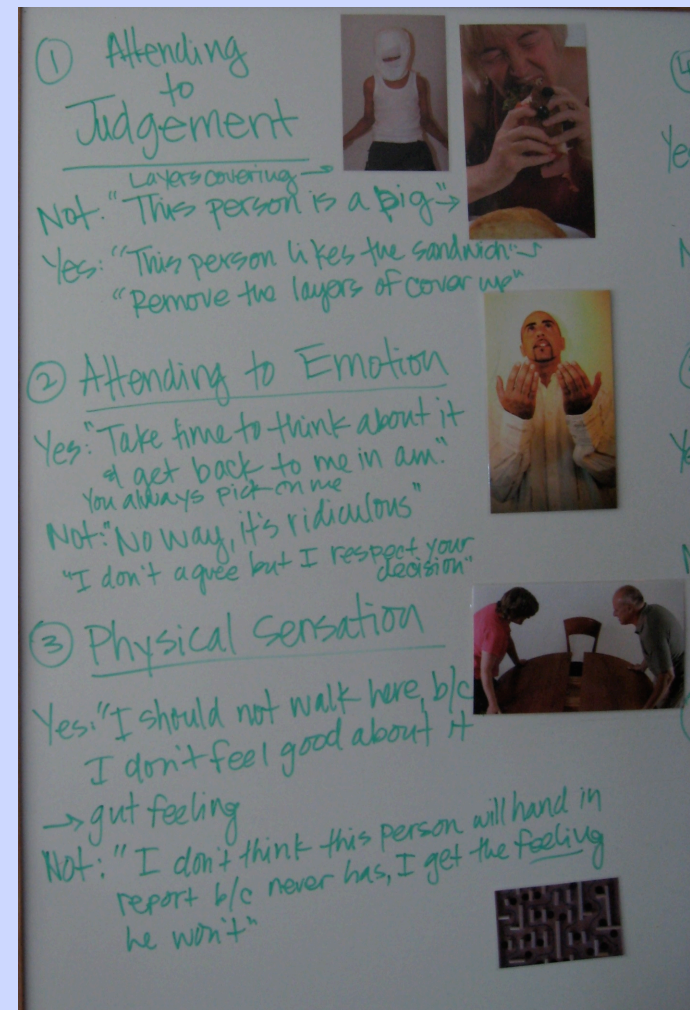 ① Attending
to
Judgement
Layers covering →
Not: "This person is a pig" →
Yes: "This person likes the sandwich"
"Remove the layers of cover up"
② Attending to Emotion
Yes: "Take time to think about it
& get back to me in am."
You always pick on me
Not: "No way, it's ridiculous"
"I don't agree but I respect your
decision"
③ Physical Sensation
Yes: "I should not walk here, b/c
I don't feel good about it
→ gut feeling
Not: "I don't think this person will hand in
report b/c never has, I get the feeling
he won't"